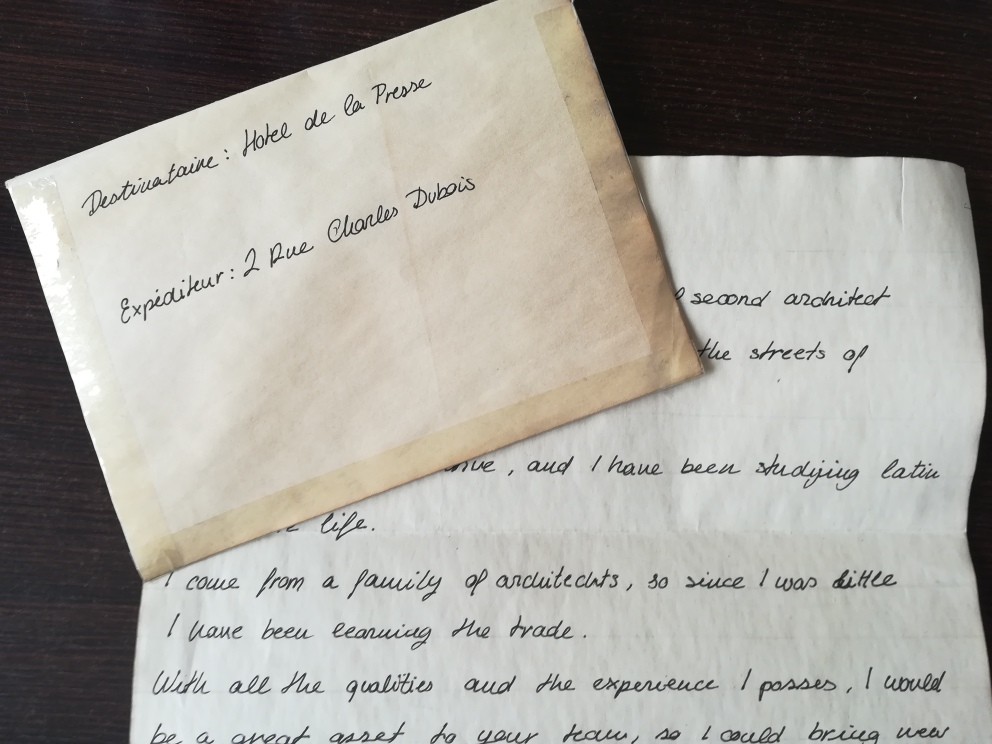 Destinataire : Hotel de la Presse
Expéditeur : 2 Rue Charles Dubois
second architect
the streets of
, and I have been studying latin
life.
I come from a family of architechts, so since I was little
I have been learning the trade.
With all the qualities and the experience I posses, I would
be a great asset to your team, so I could bring new